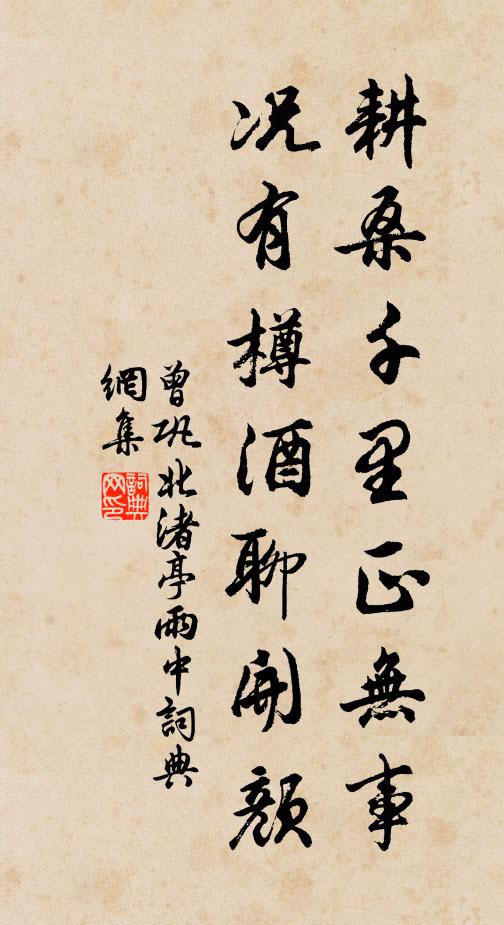 耕桑千里正無事
况有樽酒聊開顏
曾巩北渚亭雨中詞典
網集
詞典網印